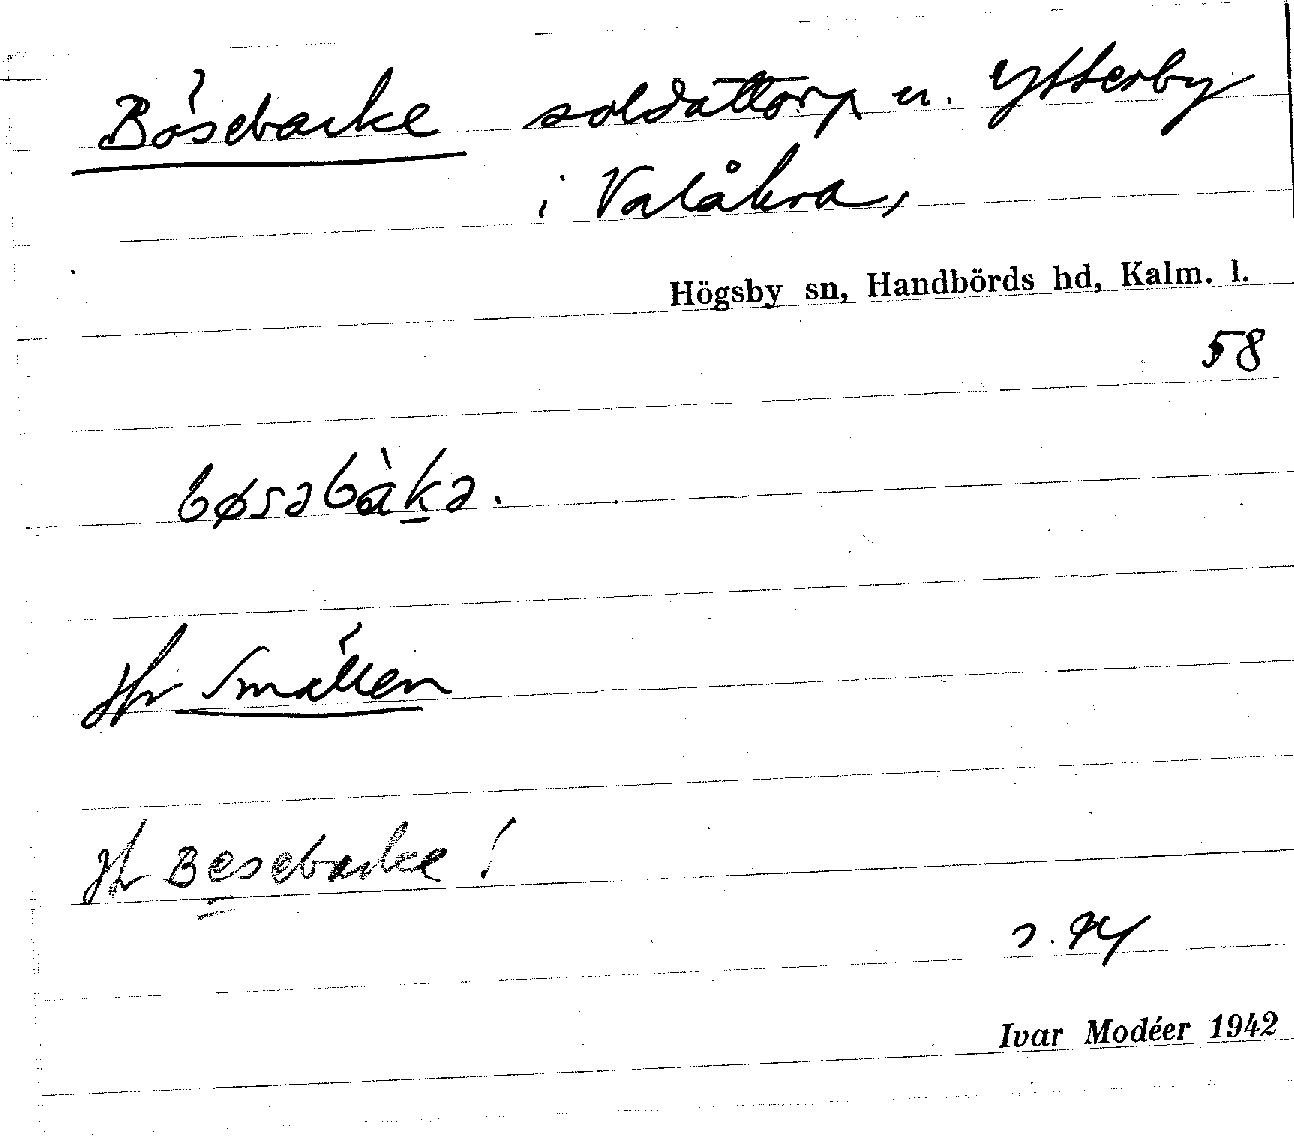 Bösebacke soldattorp u. Ytterby
i Valåkra,
Högsby sn, Handbörds hd, Kalm. l.
58
bøsəbàka.
Jfr Smällen
Jfr Besebacke!
s. 74
Ivar Modéer 1942